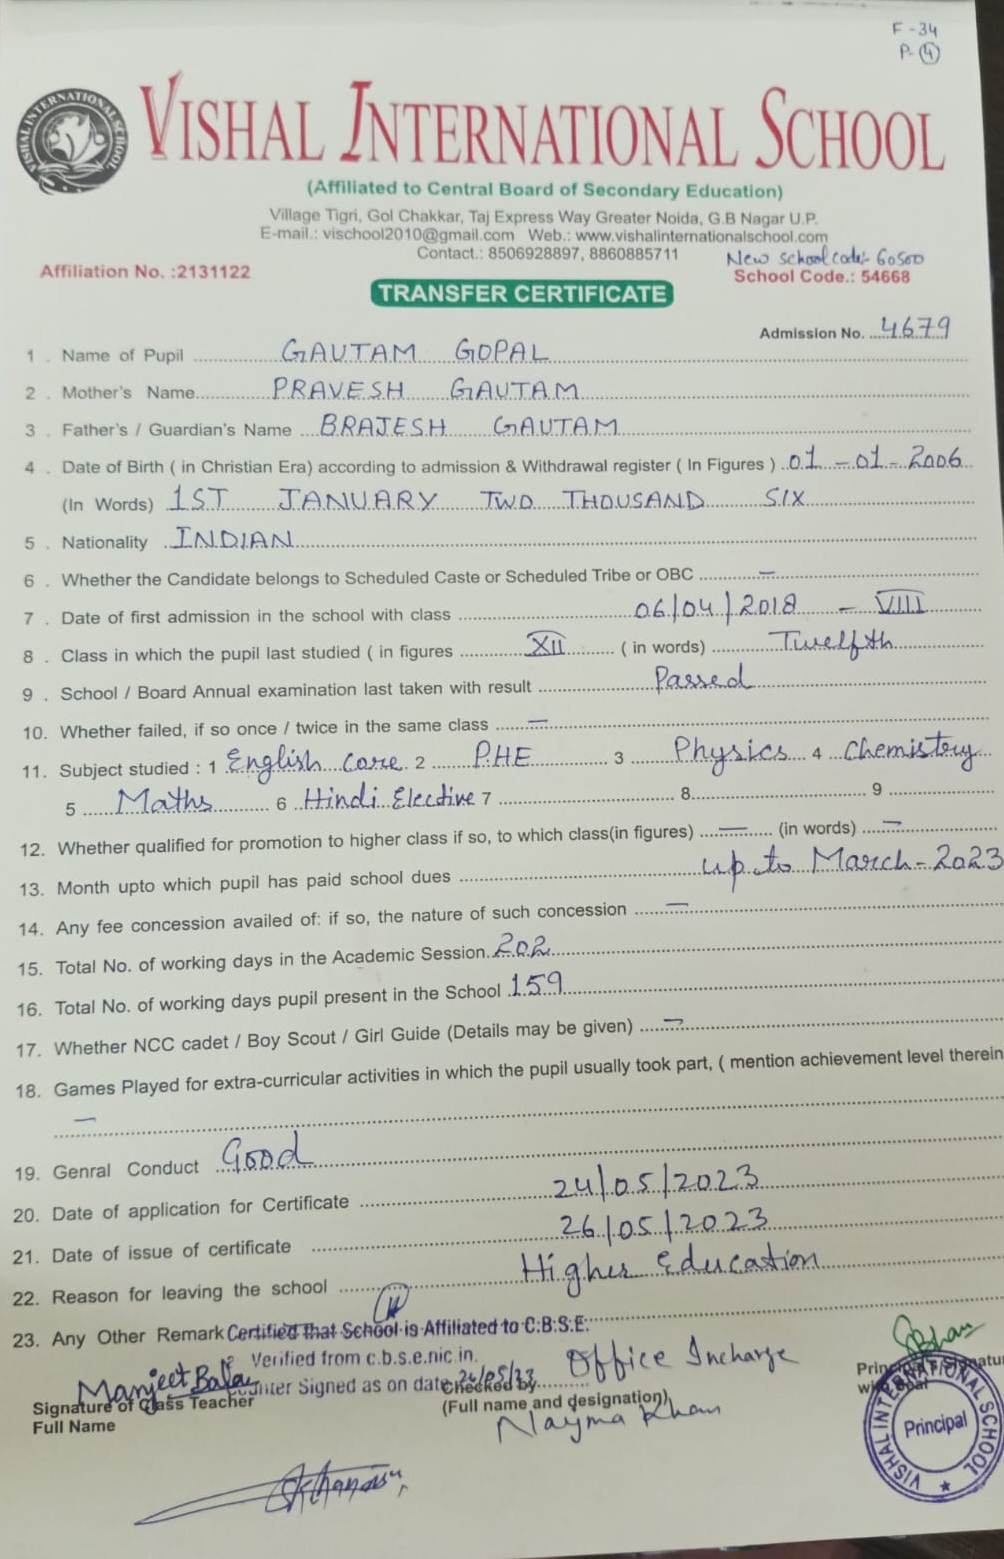 F-34
P-4
VISHAL INTERNATIONAL SCHOOL
VISHAL INTERNATIONAL SCHOOL
(Affiliated to Central Board of Secondary Education)
Village Tigri, Gol Chakkar, Taj Express Way Greater Noida, G.B Nagar U.P.
E-mail.: vischool2010@gmail.com Web.: www.vishalinternationalschool.com
Contact.: 8506928897, 8860885711
New school code:- 60500
Affiliation No. :2131122 School Code.: 54668
TRANSFER CERTIFICATE
Admission No. 4679
1 . Name of Pupil GAUTAM GOPAL
2 . Mother's Name PRAVESH GAUTAM
3 . Father's / Guardian's Name BRAJESH GAUTAM
4 . Date of Birth ( in Christian Era) according to admission & Withdrawal register ( In Figures ) 01-01-2006
(In Words) 1ST JANUARY TWO THOUSAND SIX
5 . Nationality INDIAN
6 . Whether the Candidate belongs to Scheduled Caste or Scheduled Tribe or OBC —
7 . Date of first admission in the school with class 06/04/2018 - VIII
8 . Class in which the pupil last studied ( in figures XII ( in words) Twelfth
9 . School / Board Annual examination last taken with result Passed
10. Whether failed, if so once / twice in the same class —
11. Subject studied : 1 English Core 2 P.H.E 3 Physics 4 Chemistry
5 Maths 6 Hindi Elective 7 8 9
12. Whether qualified for promotion to higher class if so, to which class(in figures) — (in words) —
13. Month upto which pupil has paid school dues up to March-2023
14. Any fee concession availed of: if so, the nature of such concession —
15. Total No. of working days in the Academic Session 202
16. Total No. of working days pupil present in the School 159
17. Whether NCC cadet / Boy Scout / Girl Guide (Details may be given) —
18. Games Played for extra-curricular activities in which the pupil usually took part, ( mention achievement level therein
—
19. Genral Conduct Good
20. Date of application for Certificate 24/05/2023
21. Date of issue of certificate 26/05/2023
22. Reason for leaving the school Higher Education
23. Any Other Remark Certified that School is Affiliated to C.B.S.E.
Verified from c.b.s.e.nic.in. Office Incharge
Manjeet Bala Counter Signed as on date 26/05/23 Checked by
Signature of Class Teacher (Full name and designation)
Full Name Nayma Khan
VISHAL INTERNATIONAL SCHOOL
Principal